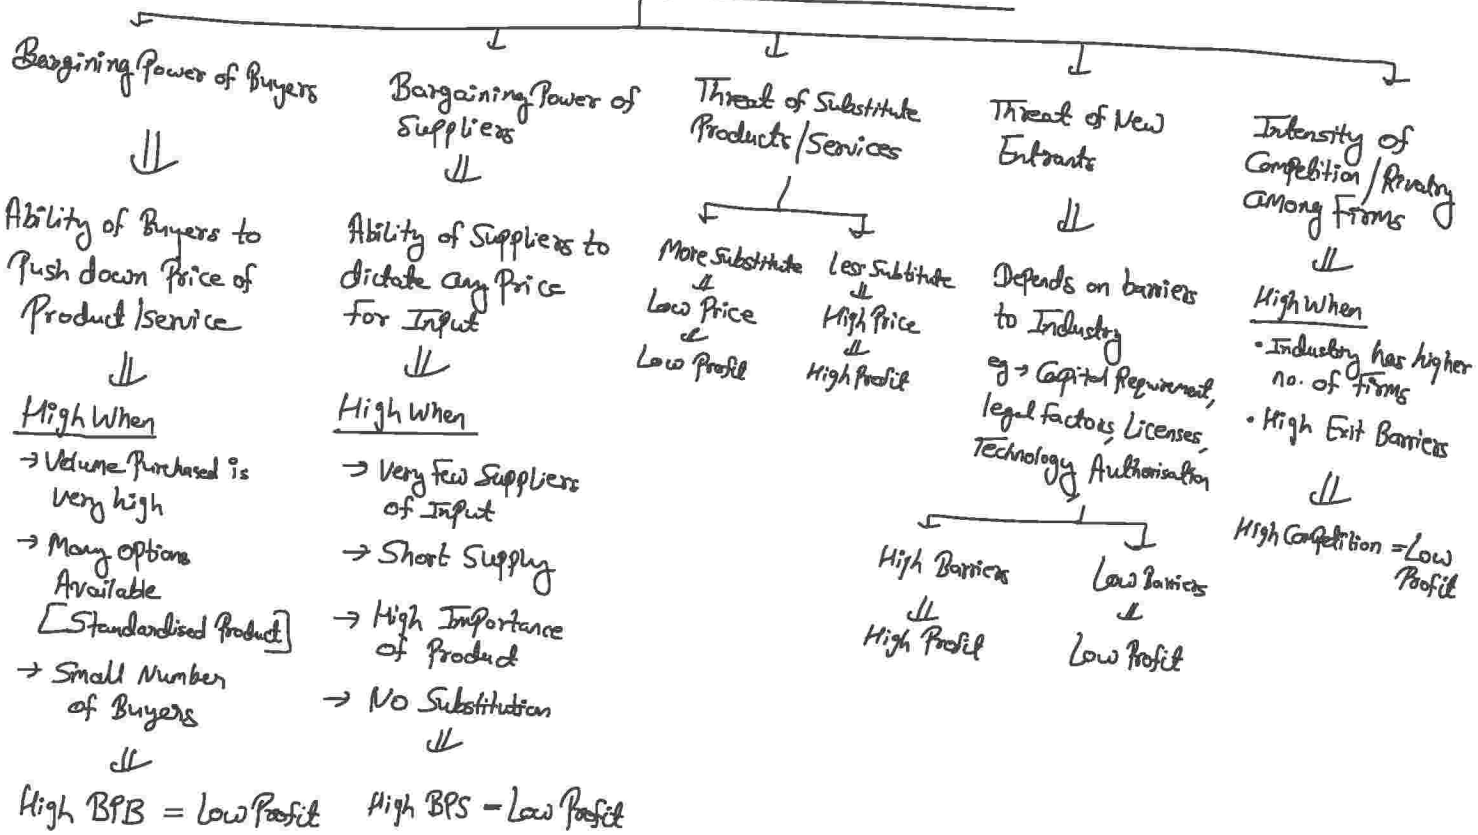 Bargining Power of Buyers
Ability of Buyers to
Push down Price of
Product/service
High When
→ Volume Purchased is
very high
→ Many options
Available
[Standardised Product]
→ Small Number
of Buyers
High BPB = Low Profit
Bargaining Power of
Suppliers
Ability of Suppliers to
dictate any Price
for Input
High When
→ Very Few Suppliers
of Input
→ Short Supply
→ High Importance
of Product
→ No Substitution
High BPS = Low Profit
Threat of Substitute
Products/Services
More Substitute
Low Price
Low Profit
Less Subtitute
High Price
High Profit
Threat of New
Entrants
Depends on barriers
to Industry
eg → Capital Requirement,
legal factors, Licenses,
Technology Authorisation
High Barriers
High Profit
Low Barriers
Low Profit
Intensity of
Competition/Rivalry
among Firms
High When
• Industry has higher
no. of firms
• High Exit Barriers
High Competition = Low
Profit